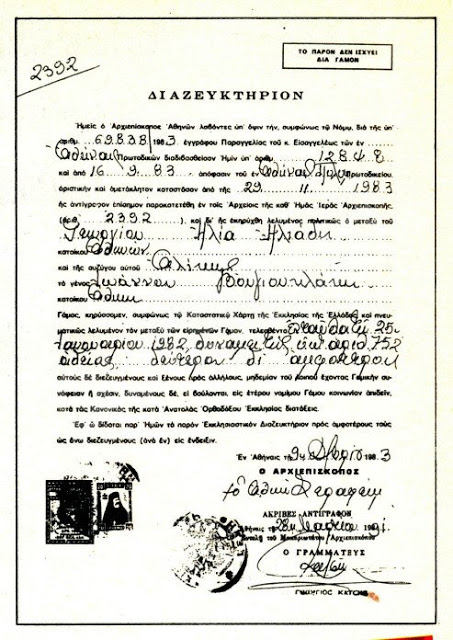 ΤΟ ΠΑΡΟΝ ΔΕΝ ΙΣΧΥΕΙ
ΔΙΑ ΓΑΜΟΝ
2392
ΔΙΑΖΕΥΚΤΗΡΙΟΝ
Ἡμεῖς ὁ Ἀρχιεπίσκοπος Ἀθηνῶν λαβόντες ὑπ' ὄψιν τήν, συμφώνως τῷ Νόμῳ, διά τῆς ὑπ'
ἀριθμ. 69838/1983 ἐγγράφου Παραγγελίας τοῦ κ. Εἰσαγγελέως τῶν ἐν
Ἀθήναις Πρωτοδικῶν διαβιβασθεῖσαν Ἡμῖν ὑπ' ἀριθμ. 12848
καί ἀπό 16 9 83 ἀπόφασιν τοῦ ἐν Ἀθήναις Πρωτοδικείου
ὁριστικήν καί ἀμετάκλητον καταστᾶσαν ἀπό τῆς 29 11 1983
ἧς ἀντίγραφον ἐπίσημον παρακατετέθη ἐν τοῖς Ἀρχείοις τῆς καθ' Ἡμᾶς Ἱερᾶς Ἀρχιεπισκοπῆς,
2392) καί δι' ἧς ἐκηρύχθη λελυμένος πολιτικῶς ὁ μεταξύ τοῦ
Γεωργίου Ηλία Ηλιάδη
κατοίκου Ἀθηνῶν
καί τῆς συζύγου αὐτοῦ Αλίκης
τό γένος Ιωάννου Βουγιουκλάκη
κατοίκου
Γάμος, κηρύσσομεν, συμφώνως τῷ Καταστατικῷ Χάρτῃ τῆς Ἐκκλησίας τῆς Ἑλλάδος καί πνευ-
ματικῶς λελυμένον τόν μεταξύ τῶν εἰρημένων Γάμον, τελεσθέντα 25
Ιανουαρίου 1982 δυνάμει τῆς ὑπ' ἀριθ 752
αδείας δεύτερον δι' ἀμφοτέρους
αὐτούς δέ διεζευγμένους καί ξένους πρός ἀλλήλους, μηδεμίαν τοῦ λοιποῦ ἔχοντας Γαμικήν συ-
νάφειαν ἤ σχέσιν, δυναμένους δέ, εἰ βούλονται, εἰς ἑτέρου νομίμου Γάμου κοινωνίαν ἀπιδεῖν,
κατά τάς Κανονικάς τῆς κατά Ἀνατολάς Ὀρθοδόξου Ἐκκλησίας διατάξεις.
Ἐφ' ᾧ δίδοται παρ' Ἡμῶν τό παρόν Ἐκκλησιαστικόν Διαζευκτήριον πρός ἀμφοτέρους τούς
ὡς ἄνω διεζευγμένους (ἀνά ἕν) εἰς ἔνδειξιν.
Ἐν Ἀθήναις τῇ 9 1983
Ο ΑΡΧΙΕΠΙΣΚΟΠΟΣ
Σεραφείμ
ΑΚΡΙΒΕΣ ΑΝΤΙΓΡΑΦΟΝ
Ἀθήναις τῇ
Ἐντολῇ τοῦ Μακαριωτάτου Ἀρχιεπισκόπου
Ο ΓΡΑΜΜΑΤΕΥΣ
ΓΕΩΡΓΙΟΣ